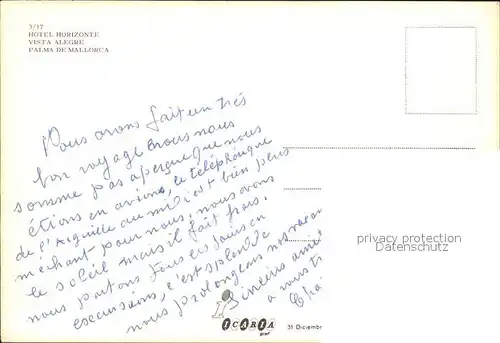 3/17
HOTEL HORIZONTE
VISTA ALEGRE
PALMA DE MALLORCA
Nous avons fait un très
bon voyage nous nous
somme pas aperçue que nous
étions en avions, le téléphérique
de l'Aiguille du midi est bien plus
méchant pour nous, nous avons
le soleil mais il fait frais.
nous partons tous les jours en
excursions, c'est splendide
nous prolongeons nos vacan
Sincères ami
a vous t
privacy protection
Datenschutz
ICARIA
graf
31 Diciembr